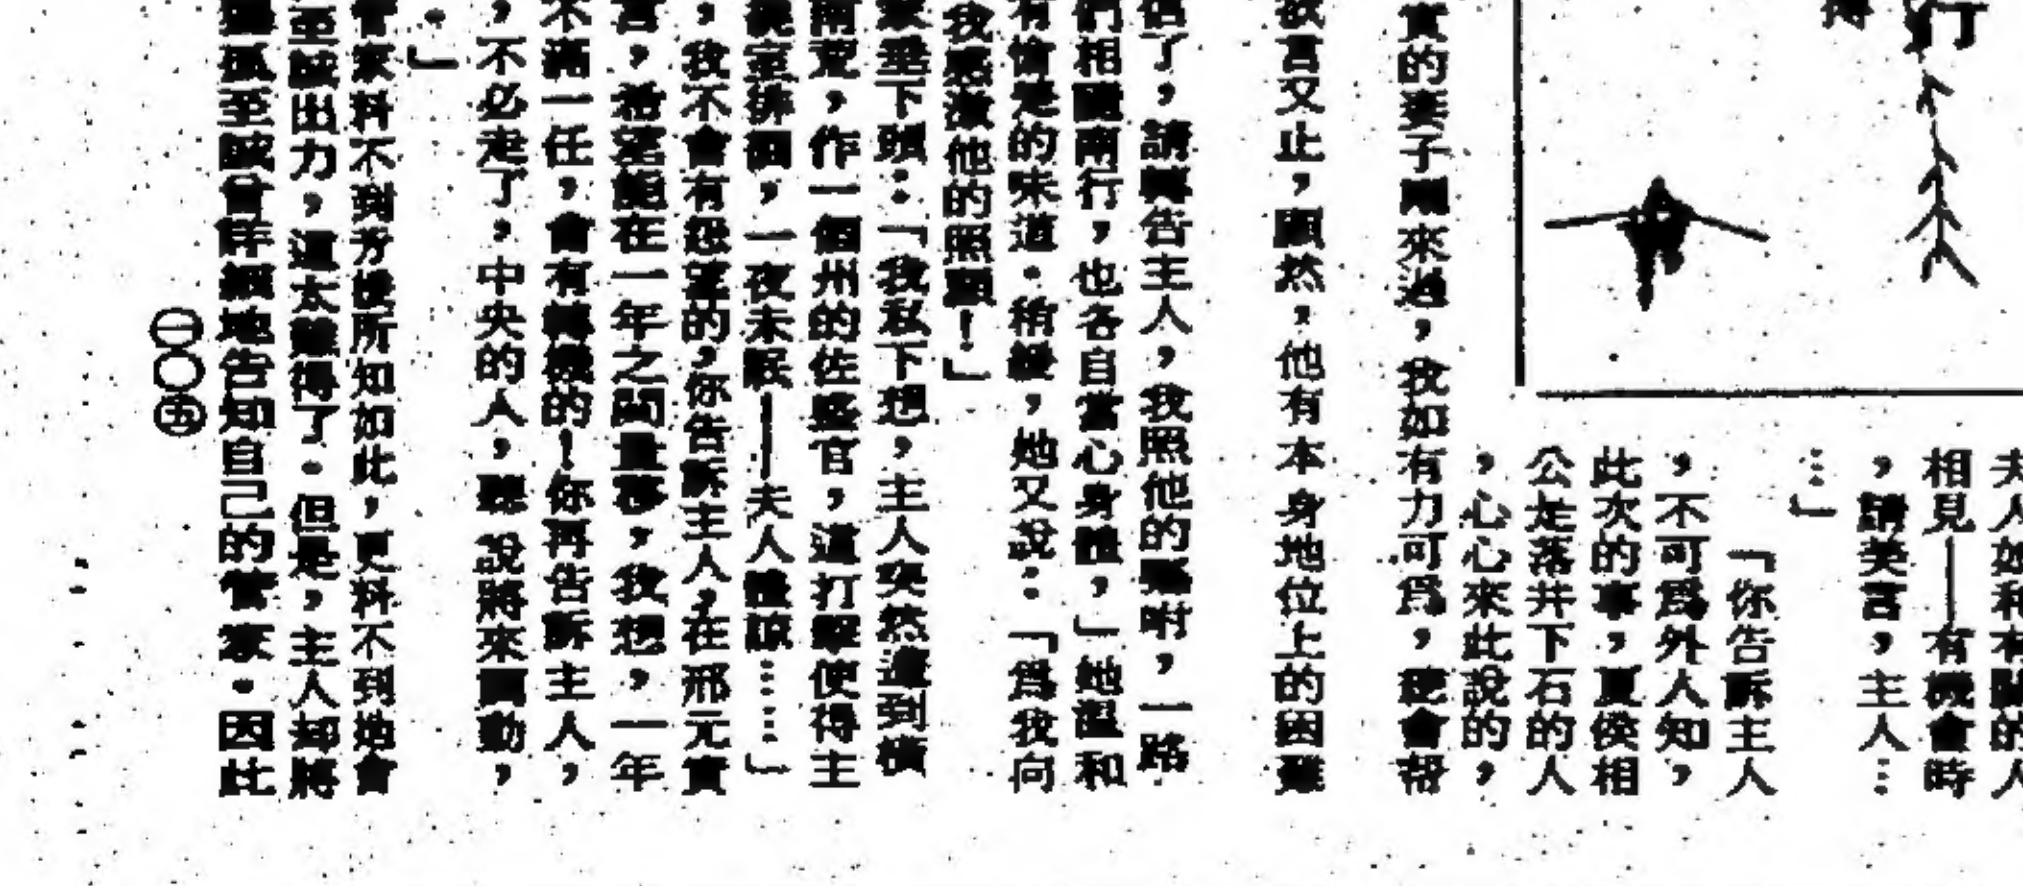 行
夫人如和有關的人
相見——有機會時
，請美言，主人…
…」
「你告訴主人
，不可爲外人知，
此次的事，夏侯相
公是落井下石的人
，心心來此說的，
實的妻子剛來過，我如有力可爲，總會幫
欲言又止，顯然，他有本身地位上的困難
信了，請轉告主人，我照他的囑咐，一路
們相隨南行，也各自當心身體，」她溫和
有愴是的味道。稍緩，她又說：「爲我向
我感激他的照顧！」
家垂下頭：「我私下想，主人突然遭到橫
南荒，作一個州的佐雜官，這打擊使得主
繞室徘徊，一夜未眠——夫人體諒……」
，我不會有怨望的，你告訴主人，在邢元實
言，希望能在一年之間量移，我想，一年
不滿一任，會有轉機的！你再告訴主人，
，不必走了，中央的人，聽說將來調動，
。」
管家料不到芳媛所知如此，更料不到她會
至誠出力，這太難得了。但是，主人却將
孤至誠會詳細地告知自己的管家。因此
一〇五